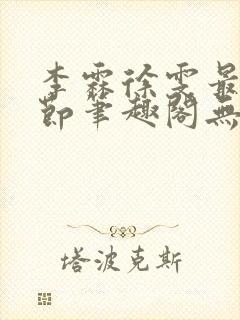 李霖徐雯最
節筆趣閣無
塔波克斯